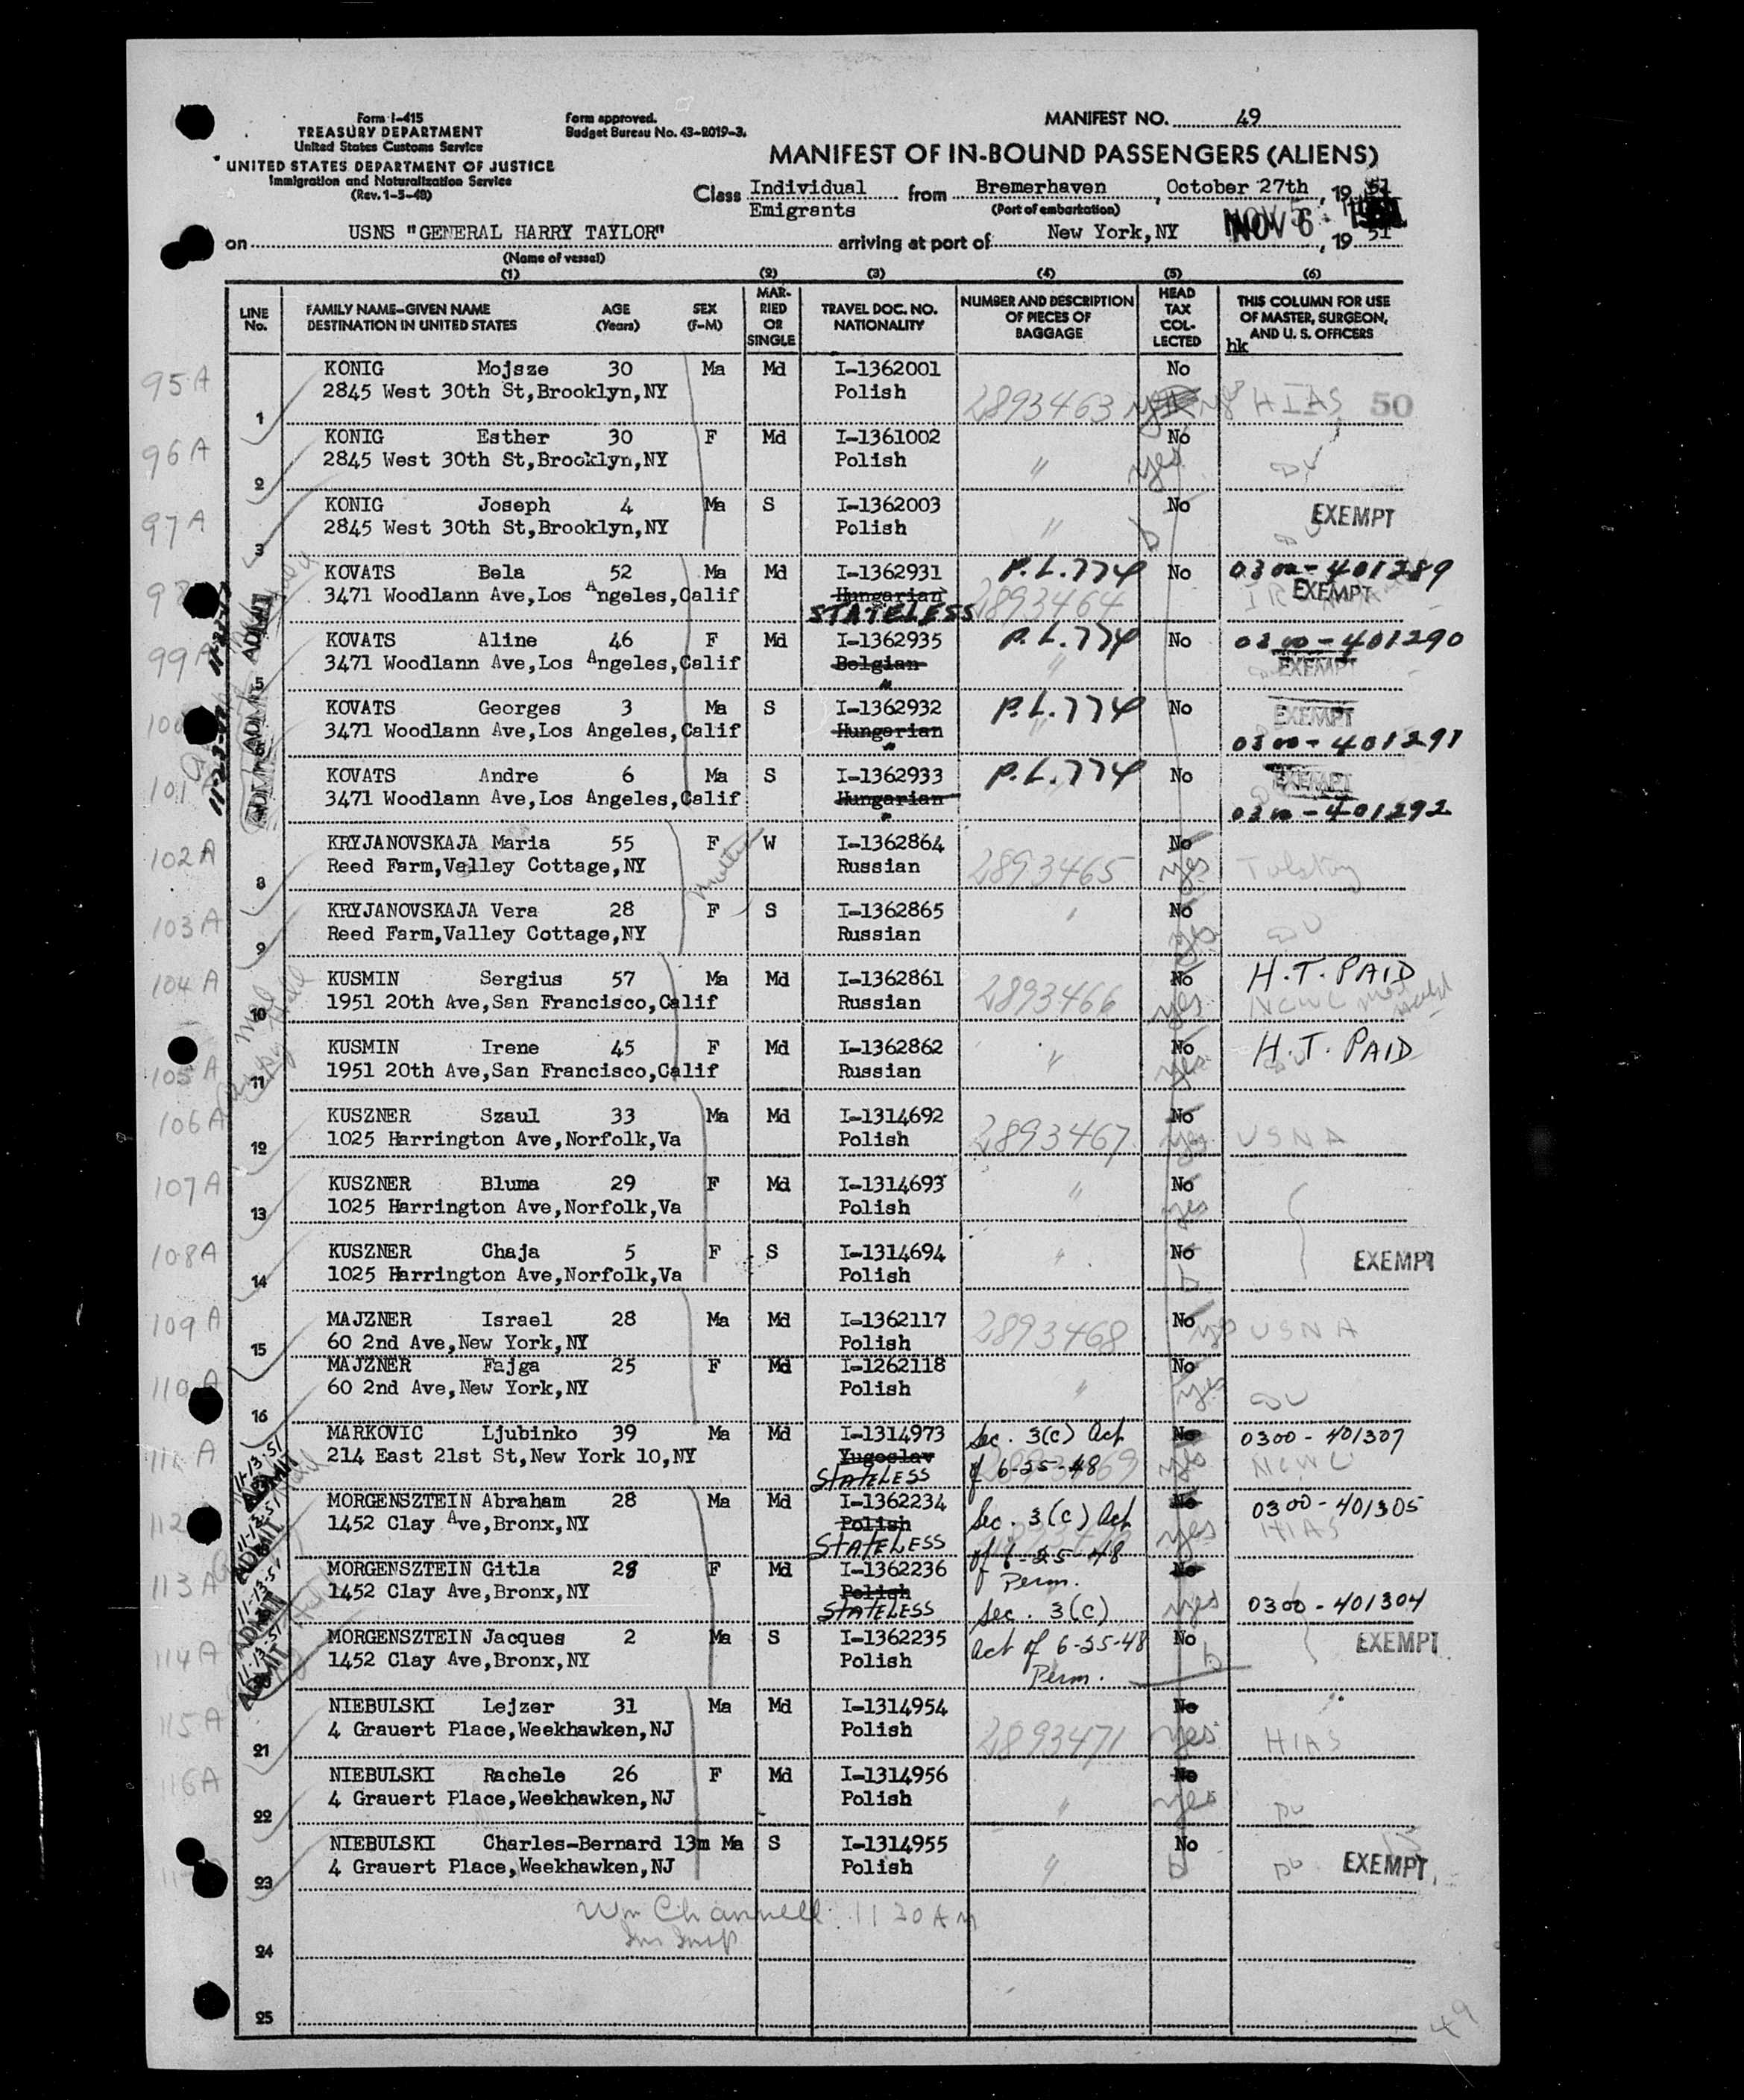 Form I-415
TREASURY DEPARTMENT
United States Customs Service
UNITED STATES DEPARTMENT OF JUSTICE
Immigration and Naturalization Service
(Rev. 1-3-49)
Form approved.
Budget Bureau No. 43-R019-3.
MANIFEST NO. 49
MANIFEST OF IN-BOUND PASSENGERS (ALIENS)
Class Individual from Bremerhaven, October 27th, 19 51
Emigrants (Port of embarkation)
on USNS "GENERAL HARRY TAYLOR" arriving at port of New York, NY NOV 6 1951, 19 51
(Name of vessel)
(1) (2) (3) (4) (5) (6)
LINE No. FAMILY NAME-GIVEN NAME DESTINATION IN UNITED STATES AGE (Years) SEX (F-M) MARRIED OR SINGLE TRAVEL DOC. NO. NATIONALITY NUMBER AND DESCRIPTION OF PIECES OF BAGGAGE HEAD TAX COLLECTED THIS COLUMN FOR USE OF MASTER, SURGEON, AND U. S. OFFICERS
hk
95A KONIG Mojsze 30 Ma Md I-1362001 No
1 2845 West 30th St,Brooklyn,NY Polish 2893463 HIAS 50
96A KONIG Esther 30 F Md I-1361002 No
2 2845 West 30th St,Brooklyn,NY Polish " yes Do
97A KONIG Joseph 4 Ma S I-1362003 No EXEMPT
3 2845 West 30th St,Brooklyn,NY Polish " Do
KOVATS Bela 52 Ma Md I-1362931 P.L.774 No 0300-401289
3471 Woodlann Ave,Los Angeles,Calif Hungarian 2893464 EXEMPT
ADMIT STATELESS
99A KOVATS Aline 46 F Md I-1362935 P.L.774 No 0300-401290
5 3471 Woodlann Ave,Los Angeles,Calif Belgian " EXEMPT
"
KOVATS Georges 3 Ma S I-1362932 P.L.774 No EXEMPT
ADMIT 3471 Woodlann Ave,Los Angeles,Calif Hungarian " 0300-401291
101A KOVATS Andre 6 Ma S I-1362933 P.L.774 No EXEMPT
ADMIT 3471 Woodlann Ave,Los Angeles,Calif Hungarian " 0300-401292
102A KRYJANOVSKAJA Maria 55 F W I-1362864 No
8 Reed Farm,Valley Cottage,NY mother Russian 2893465 yes Tolstoy
103A KRYJANOVSKAJA Vera 28 F S I-1362865 No
9 Reed Farm,Valley Cottage,NY Russian " yes Do
104A KUSMIN Sergius 57 Ma Md I-1362861 No H.T. PAID
10 1951 20th Ave,San Francisco,Calif Russian 2893466 yes NCWC
105A KUSMIN Irene 45 F Md I-1362862 No H.T. PAID
11 1951 20th Ave,San Francisco,Calif Russian " yes Do
106A KUSZNER Szaul 33 Ma Md I-1314692 No
12 1025 Harrington Ave,Norfolk,Va Polish 2893467 yes USNA
107A KUSZNER Bluma 29 F Md I-1314693 No
13 1025 Harrington Ave,Norfolk,Va Polish " yes
108A KUSZNER Chaja 5 F S I-1314694 No EXEMPT
14 1025 Harrington Ave,Norfolk,Va Polish "
109A MAJZNER Israel 28 Ma Md I-1362117 No
15 60 2nd Ave,New York,NY Polish 2893468 yes USNA
110A MAJZNER Fajga 25 F Md I-1262118 No
16 60 2nd Ave,New York,NY Polish " yes Do
111A MARKOVIC Ljubinko 39 Ma Md I-1314973 Sec. 3(c) Act No 0300-401307
11-13-51 ADMIT 214 East 21st St,New York 10,NY Yugoslav of 6-25-48 2893469 yes NCWC
STATELESS
112 MORGENSZTEIN Abraham 28 Ma Md I-1362234 Sec. 3(c) Act No 0300-401305
11-13-51 ADMIT 1452 Clay Ave,Bronx,NY Polish yes HIAS
STATELESS of 6-25-48
113A MORGENSZTEIN Gitla 28 F Md I-1362236 Perm. No
11-13-51 ADMIT 1452 Clay Ave,Bronx,NY Polish yes 0300-401304
STATELESS Sec. 3(c)
114A MORGENSZTEIN Jacques 2 Ma S I-1362235 Act of 6-25-48 No EXEMPT
11-13-51 ADMIT 1452 Clay Ave,Bronx,NY Polish Perm.
115A NIEBULSKI Lejzer 31 Ma Md I-1314954 No
21 4 Grauert Place,Weekhawken,NJ Polish 2893471 yes HIAS
116A NIEBULSKI Rachele 26 F Md I-1314956 No
22 4 Grauert Place,Weekhawken,NJ Polish " yes Do
NIEBULSKI Charles-Bernard 13m Ma S I-1314955 No
23 4 Grauert Place,Weekhawken,NJ Polish " Do EXEMPT
Wm Channell 11 30 AM
Im Insp
24
25
49